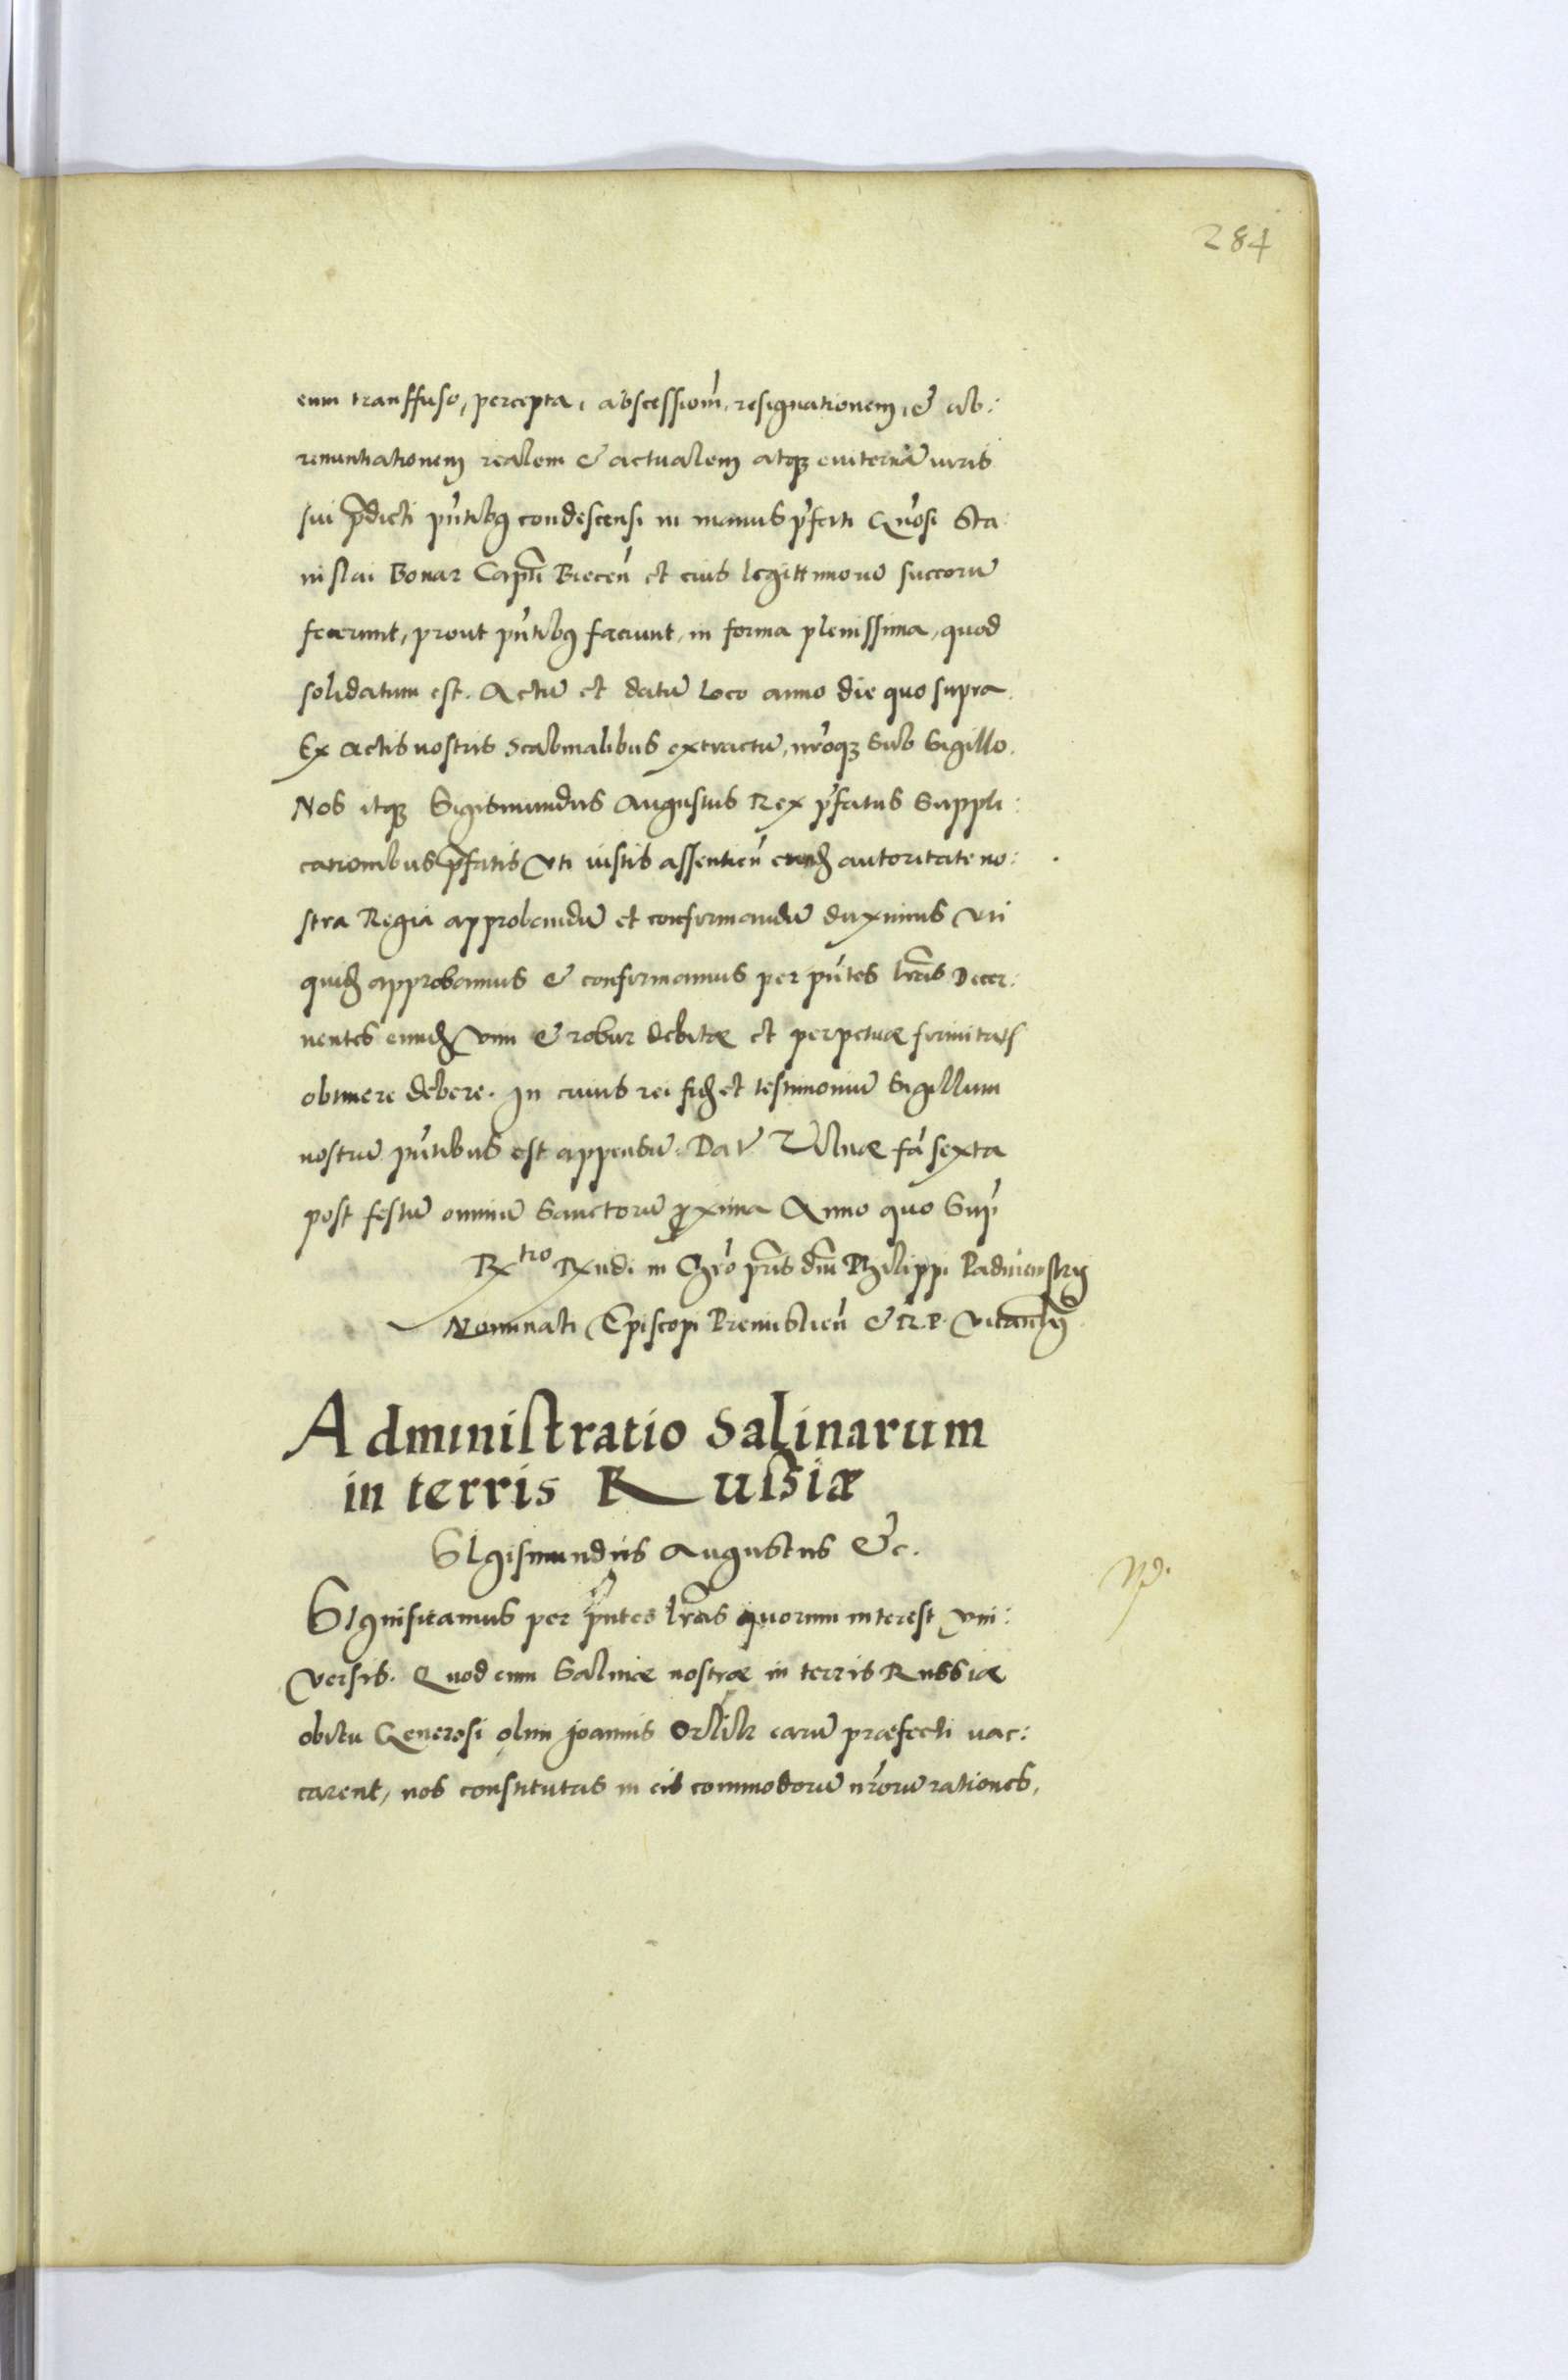 284
eum transffuso, percepta, abscessionē, resignationem, & ab:
renuntiationem realem & actualem atqȝ euiternā iuris
sui p̄dicti pñtibꝰ condescensi in manus pͬfati Gn̄osi Sta
nislai Bonar Capn̄i Biecen̄ et eius legittimorū succorū
fecerunt, prout pñtibꝰ faciunt, in forma plenissima, quod
solidatum est. Actū et datū loco anno die quo supra.
Ex actis nostris Scabinalibus extractū, nr̄oqȝ sub Sigillo.
Nos itqȝ Sigismundus Augustus Rex pͬfatus Suppli:
cationibus p̄fatis vti iustis assentien̄ eundē autoritate no:
stra Regia approbandū et confirmandū duximus vti
quidē approbamus & confirmamus per pñtes lr̄as Decer:
nentes eundē vim & robur debitæ et perpetuæ firmitatis
obtinere debere. In cuius rei fidē et testimoniū Sigillum
nostrū pñtibus est appensū. Dat Vilnæ fā sexta
post festū omniū Sanctorū ꝓxima Anno quo Sup̄
Rx tio Rx ndi in Chr̄o pr̄is dn̄i Philippi Padniewskij
Nominati Episcopi Premislien̄ & R. P. Vicancͬij
Administratio Salinarum
in terris Rußiæ
SIgismundus Augustus &c.
SIgnificamus per pñtes lr̄as quorum interest vni:
versis. Quod cum Salinæ nostræ in terris Russiæ
obitu Generosi olim Joannis Orlik earū præfecti vac:
carent, nos constitutas in eis commodorū nr̄orū rationes,